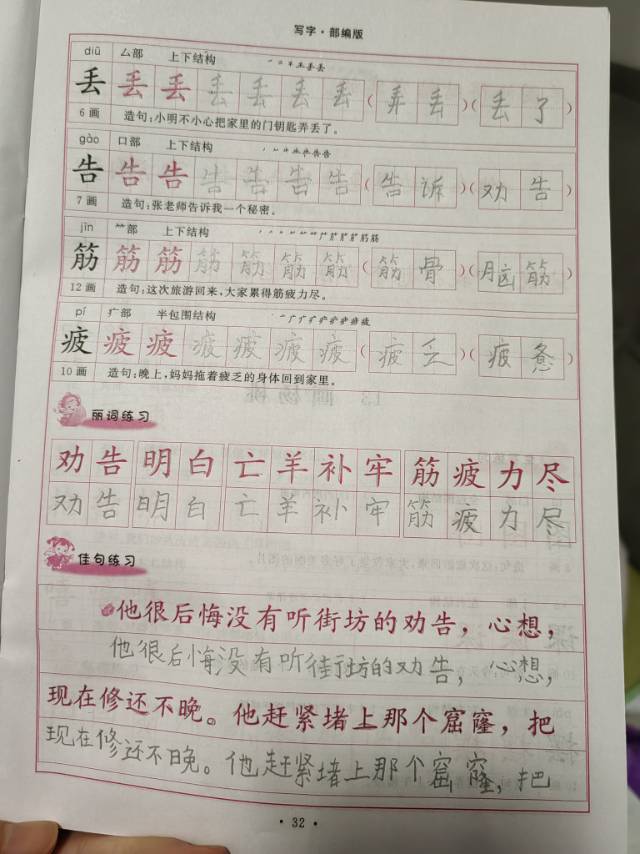 写字·部编版
diū 厶部 上下结构
丢 丢 丢 丢 丢 丢 丢 (弄 丢)(丢 了)
6画 造句:小明不小心把家里的门钥匙弄丢了。
gào 口部 上下结构
告 告 告 告 告 告 告 (告 诉)(劝 告)
7画 造句:张老师告诉我一个秘密。
jīn ⺮部 上下结构
筋 筋 筋 筋 筋 筋 筋 (筋 骨)(脑 筋)
12画 造句:这次旅游回来,大家累得筋疲力尽。
pí 疒部 半包围结构
疲 疲 疲 疲 疲 疲 疲 (疲 乏)(疲 惫)
10画 造句:晚上,妈妈拖着疲乏的身体回到家里。
丽词练习
劝告 明白 亡羊补牢 筋疲力尽
劝告 明白 亡羊补牢 筋疲力尽
佳句练习
他很后悔没有听街坊的劝告,心想,
他很后悔没有听街坊的劝告,心想,
现在修还不晚。他赶紧堵上那个窟窿,把
现在修还不晚。他赶紧堵上那个窟窿,把
·32·